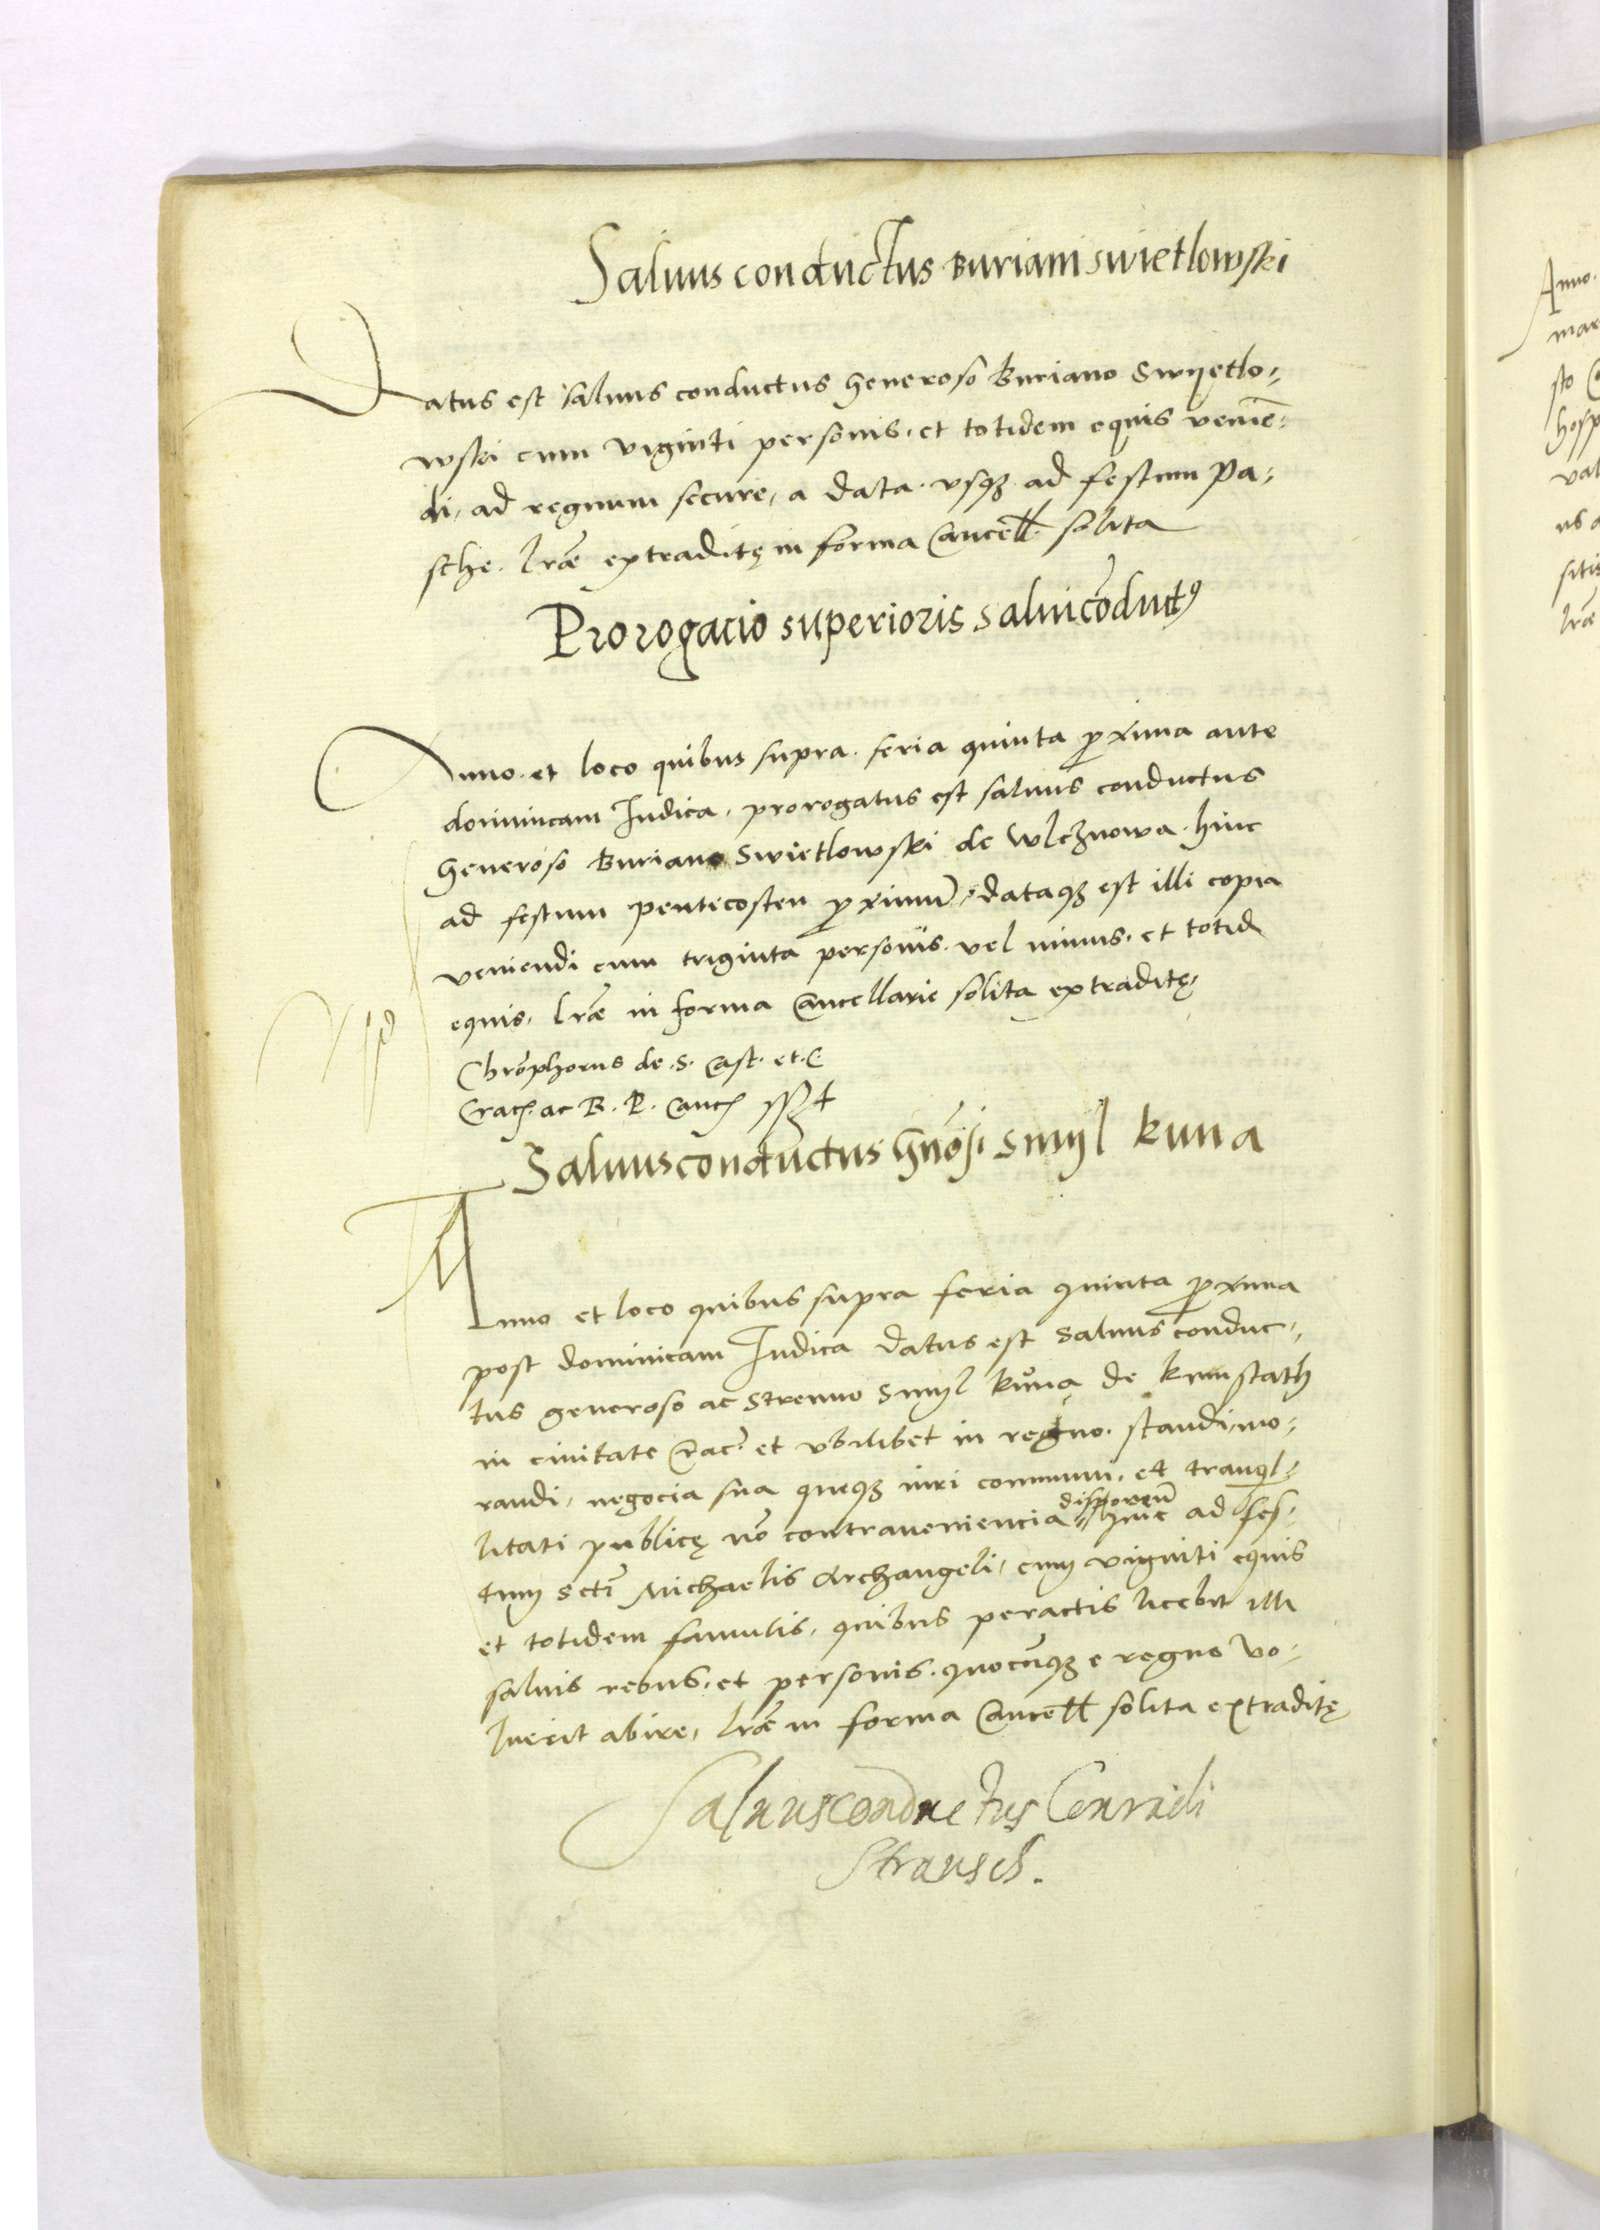 Saluus conductus Buriani Swietlowski
Datus est saluus conductus Generoso Buriano Swyetlo-
wski cum viginti personis, et totidem equis venien̄-
di, ad regnum secure, a data vsqȝ ad festum Pa-
sche. lrāe extraditę in forma Cancell. solita
Prorogacio superioris saluicōductꝯ
Anno et loco quibus supra. feria quinta proxima ante
dominicam Iudica, prorogatus est saluus conductus
Generoso Buriano Swietlowski de Wlcznowa. hinc
ad festum pentecosten proximū, dataqȝ est illi copia
veniendi cum triginta personis. vel minus. et totid
equis, lrāe in forma Cancellarie solita extraditę
Chrōphorus de .S. Cast. et. C
Crac. ac R. P. Canc. sszt
Saluusconductus Gn̄osi Smyl Kuna
Anno et loco quibus supra feria quinta proxima
post dominicam Iudica datus est saluus conduc-
tus generoso ac strenuo Smyl Kůna de Kunstath
in ciuitate Crac. et vbilibet in regno. standi, mo-
randi, negocia sua queqȝ iuri communi, et tranqil-
litati publicę nō contraueniencia disponen̄ hinc ad fes-
tum scti Michaelis Archangeli, cum viginti equis
et totidem famulis, quibus peractis licebit illi
saluis rebus, et personis. quocūqȝ e regno vo-
luerit abire, lrāe in forma Cancell solita extraditę
Saluusconductus Conradi
Strausch.
Anno.
mar
sto
hosp
val
us a
sitis
lrāe